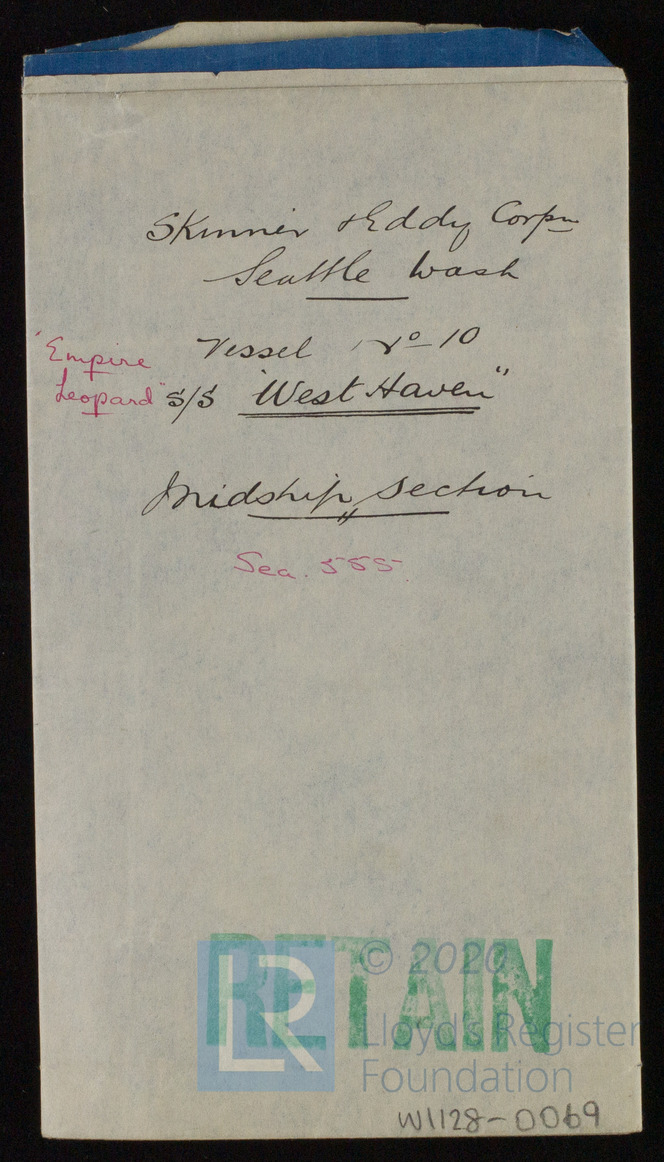 Skinner & Eddy Corpn
Seattle Wash
Vessel No 10
"Empire
Leopard"
S/S "West Haven"
Midship Section
Sea. 555
RETAIN
LR
© 2020
Lloyd's Register
Foundation
W1128-0069